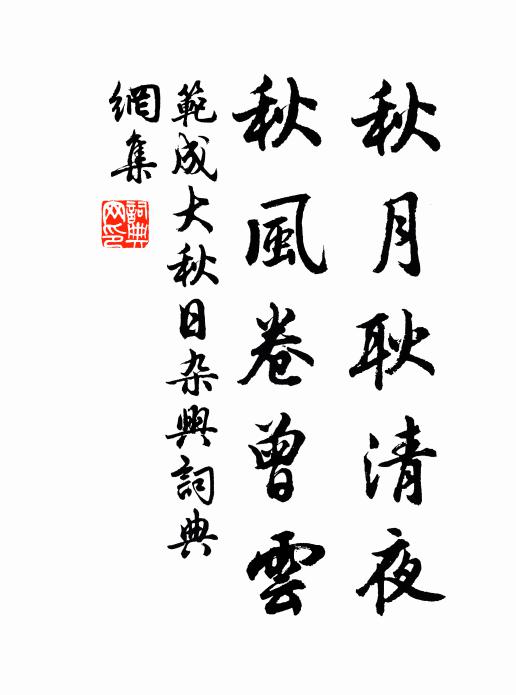 秋月耿清夜
秋風卷曾雲
範成大秋日杂興詞典
網集
詞典網印